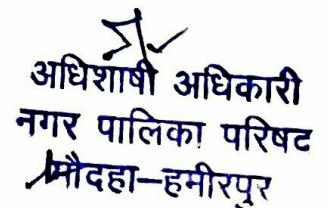 अधिशाषी अधिकारी
नगर पालिका परिषद
मौदहा–हमीरपुर